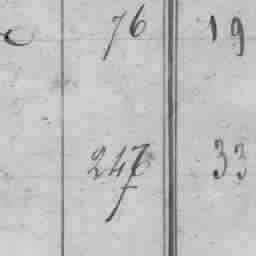 76 19
247 33